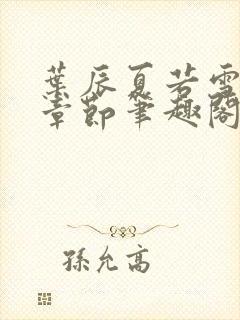 葉辰夏若雪
章節筆趣閣
孫允高